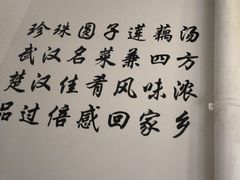 珍珠圆子莲藕汤
武汉名菜兼四方
楚汉佳肴风味浓
品过倍感回家乡